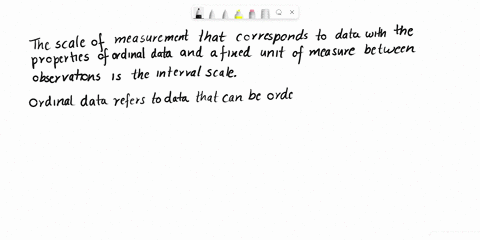 The scale of measurement that corresponds to data with the
properties of ordinal data and a fixed unit of measure between
observations is the interval scale.
Ordinal data refers to data that can be orde